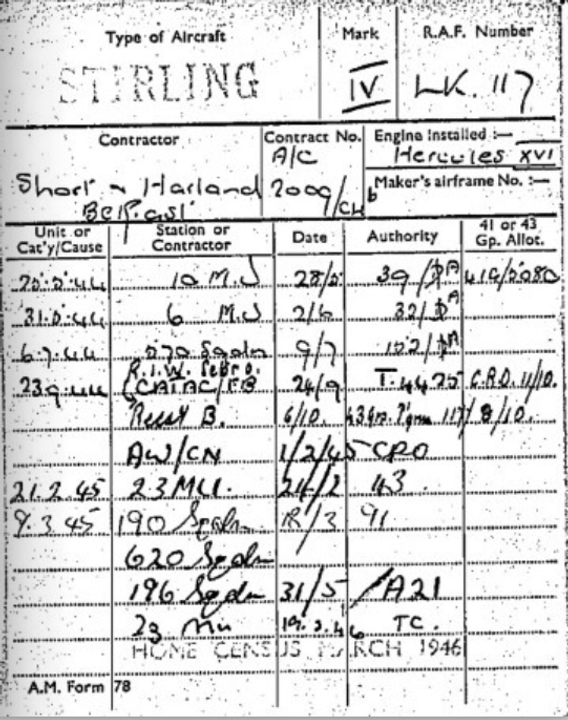 Type of Aircraft Mark R.A.F. Number
STIRLING IV LK. 117
Contractor Contract No. Engine Installed :—
A/C Hercules XVI
Short & Harland 2009/CH Maker's airframe No. :—
Belfast 6
Unit or Cat'y/Cause Station or Contractor Date Authority 41 or 43 Gp. Allot.
10 M.U 28/5 39/
31.5.44 6 M.U 2/6 32/
6.7.44 570 Sqdn 9/7 102/
R.I.W. Sebro.
23.9.44 (CATAC/FB 24/9 T.4425 C.R.D. 11/10.
B. 6/10. 43 Grp. 117/ 8/10.
AW/CN 1/2/45 CRO
21.2.45 23 MU. 24/2 43
9.3.45 190 Sqdn 8/3 91
620 Sqdn
196 Sqdn 31/5 /A21
23 Mu 19.3.46 TC.
HOME CENSUS MARCH 1946
A.M. Form 78